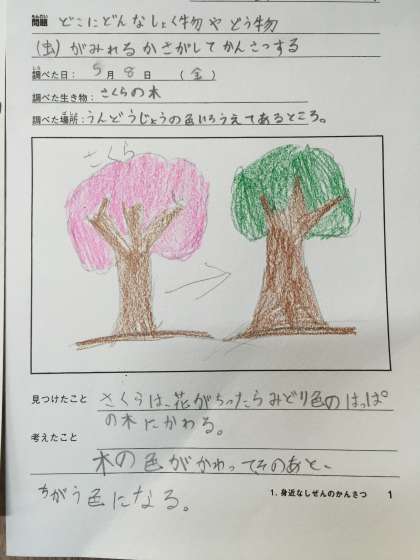 問題 どこにどんなしょく物やどう物
(虫)がみれるかさがしてかんさつする
調べた日: 5月8日 (金)
調べた生き物: さくらの木
調べた場所: うんどうじょうの色いろうえてあるところ。
さくら
見つけたこと さくらは、花がちったらみどり色のはっぱ
の木にかわる。
考えたこと
木の色がかわってそのあと、
ちがう色になる。
1. 身近なしぜんのかんさつ 1